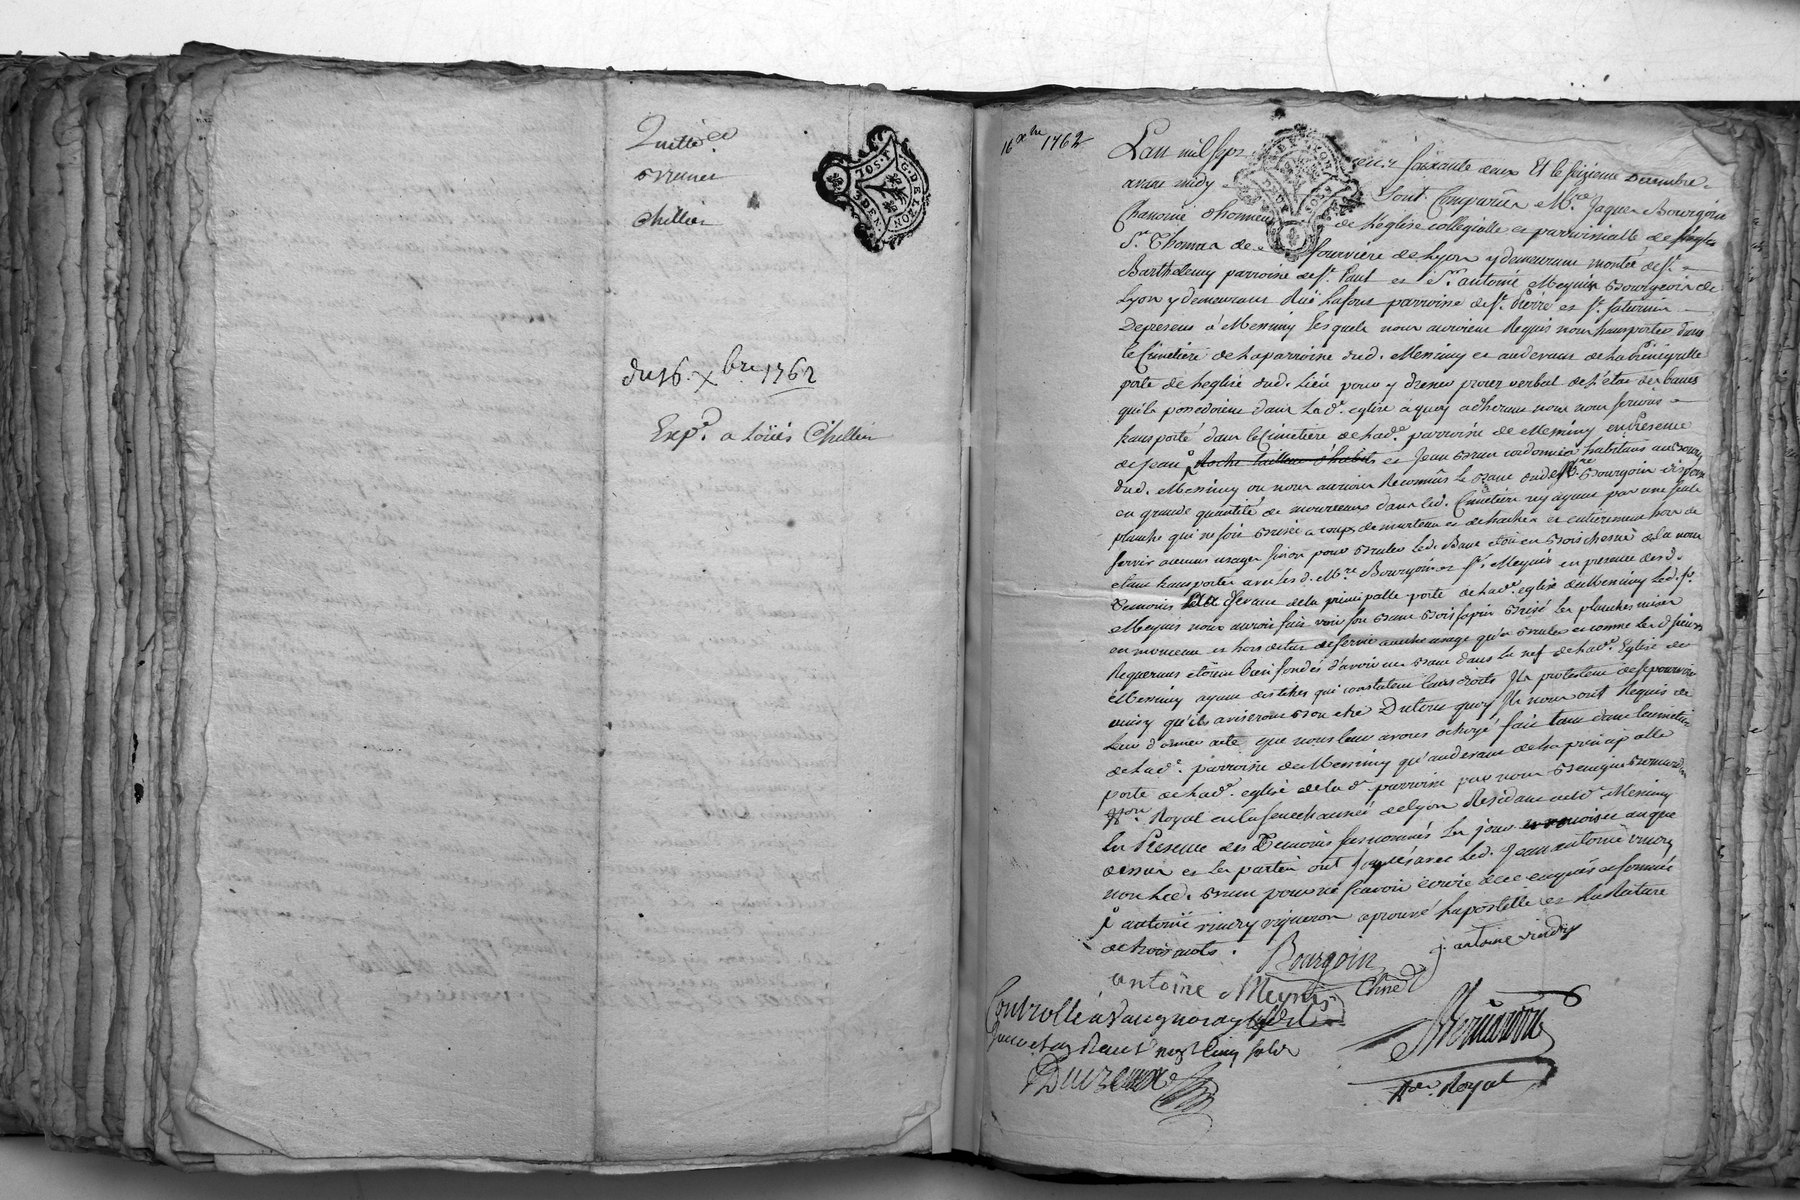 Quittce
Brunet
Chillier
du 16. Xbre 1762
Expé. a Loüis Chillier
16 xbre 1762
L'an mil sept cens soixante deux Et le seizieme Decembre
avant midy Sont Comparûs Mre. Jaques Bourgoin
Chanoine d'honneur de l'eglise collegialle et parroissialle de
St. Thomas de fourviere de Lyon y demeurant montée de St.
Barthelemy parroisse de St. Paul et Sr. antoine Meynis Bourgeois de
Lyon y demeurant Ruë Lafont parroisse de St. Pierre et St. Saturnin
De present à Messimy Lesquels nous auroient Requis nous transporter dans
le Cimetiere de la parroisse dud. Messimy et audevant de la principalle
porte de l'eglise dud. Lieu pour y dresser procès verbal de l'état des bancs
qu'ils possedoient dans la de. eglise à quoy adherant nous nous serions
transporté dans le Cimetiere de lad. parroisse de Messimy en presence
de Jean Roche tailleur d'habits et Jean Brun cordonnier habitans au Bourg
dud. Messimy ou nous aurions Reconnus le Banc dud. Mre. Bourgoin
en grande quantité de morceaux dans led. Cimetiere n'y ayant pas une seule
planche qui ne soit Brisée a coups de marteau et de haches et entierement hors de
servir aucun usage sinon pour Bruler led. Banc etoit en Bois chesne de la nous
étant transportés avec lesd. Mre. Bourgoin et Sr. Meynis en presence desd.
Temoins devant de la principalle porte de lade. eglise de Messimy led. Sr.
Meynis nous auroit fait voir son Banc Bois sapin Brisé les planches mises
en morceau et hors detat de servir autre usage qu'a Bruler et comme lesd. sieurs
Requerans étoient bien fondés d'avoir un Banc dans la nef de lade. Eglise de
Messimy ayant des titres qui constatent leurs droits Ils protestent de se pourvoir
ainsy qu'ils aviseront Bon etre Du tout quoy Ils nous ont Requis de
leur donner acte que nous leur avons octroyé fait tant dans le cimetiere
de lade. parroisse de Messimy qu'audevant de la principalle
porte de lade. eglise de lade. parroisse par nous Benigne
Nore. Royal en la senechaussée de Lyon Residant aud. Messimy
En Presence des Temoins susnommés les jour et an que
dessus et les parties ont signé avec led. Jean antoine vindry
non led. Brun pour ne sçavoir écrire de ce enquis et sommé
J. antoine vindry vigneron aprouvé l'apostille et la Rature
de trois mots.
Bourgoin
Chne
j. antoine vindry
antoine Meynis
Controllé à Vaugneray
Reçu neuf cinq sols
Nore. Royal